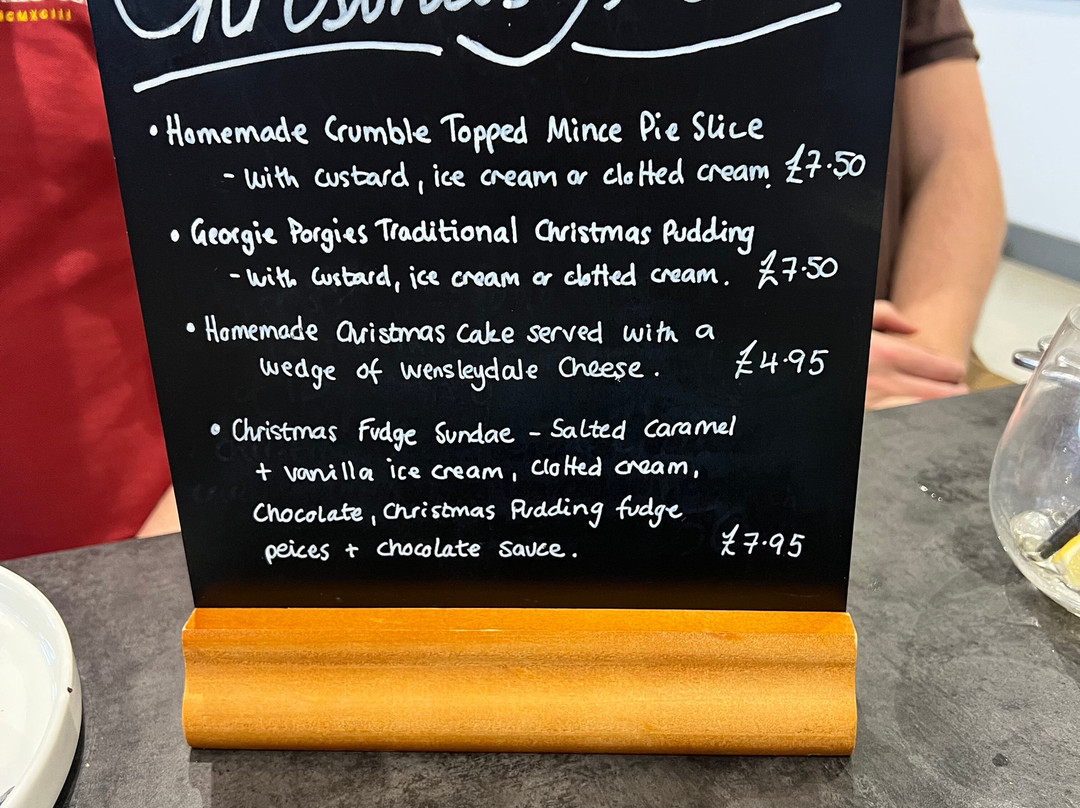 • Homemade Crumble Topped Mince Pie Slice
- With custard, ice cream or clotted cream. £7.50
• Georgie Porgies Traditional Christmas Pudding
- With custard, ice cream or clotted cream. £7.50
• Homemade Christmas Cake served with a
wedge of Wensleydale Cheese. £4.95
• Christmas Fudge Sundae - Salted Caramel
+ vanilla ice cream, clotted cream,
Chocolate, Christmas Pudding fudge
peices + chocolate sauce. £7.95